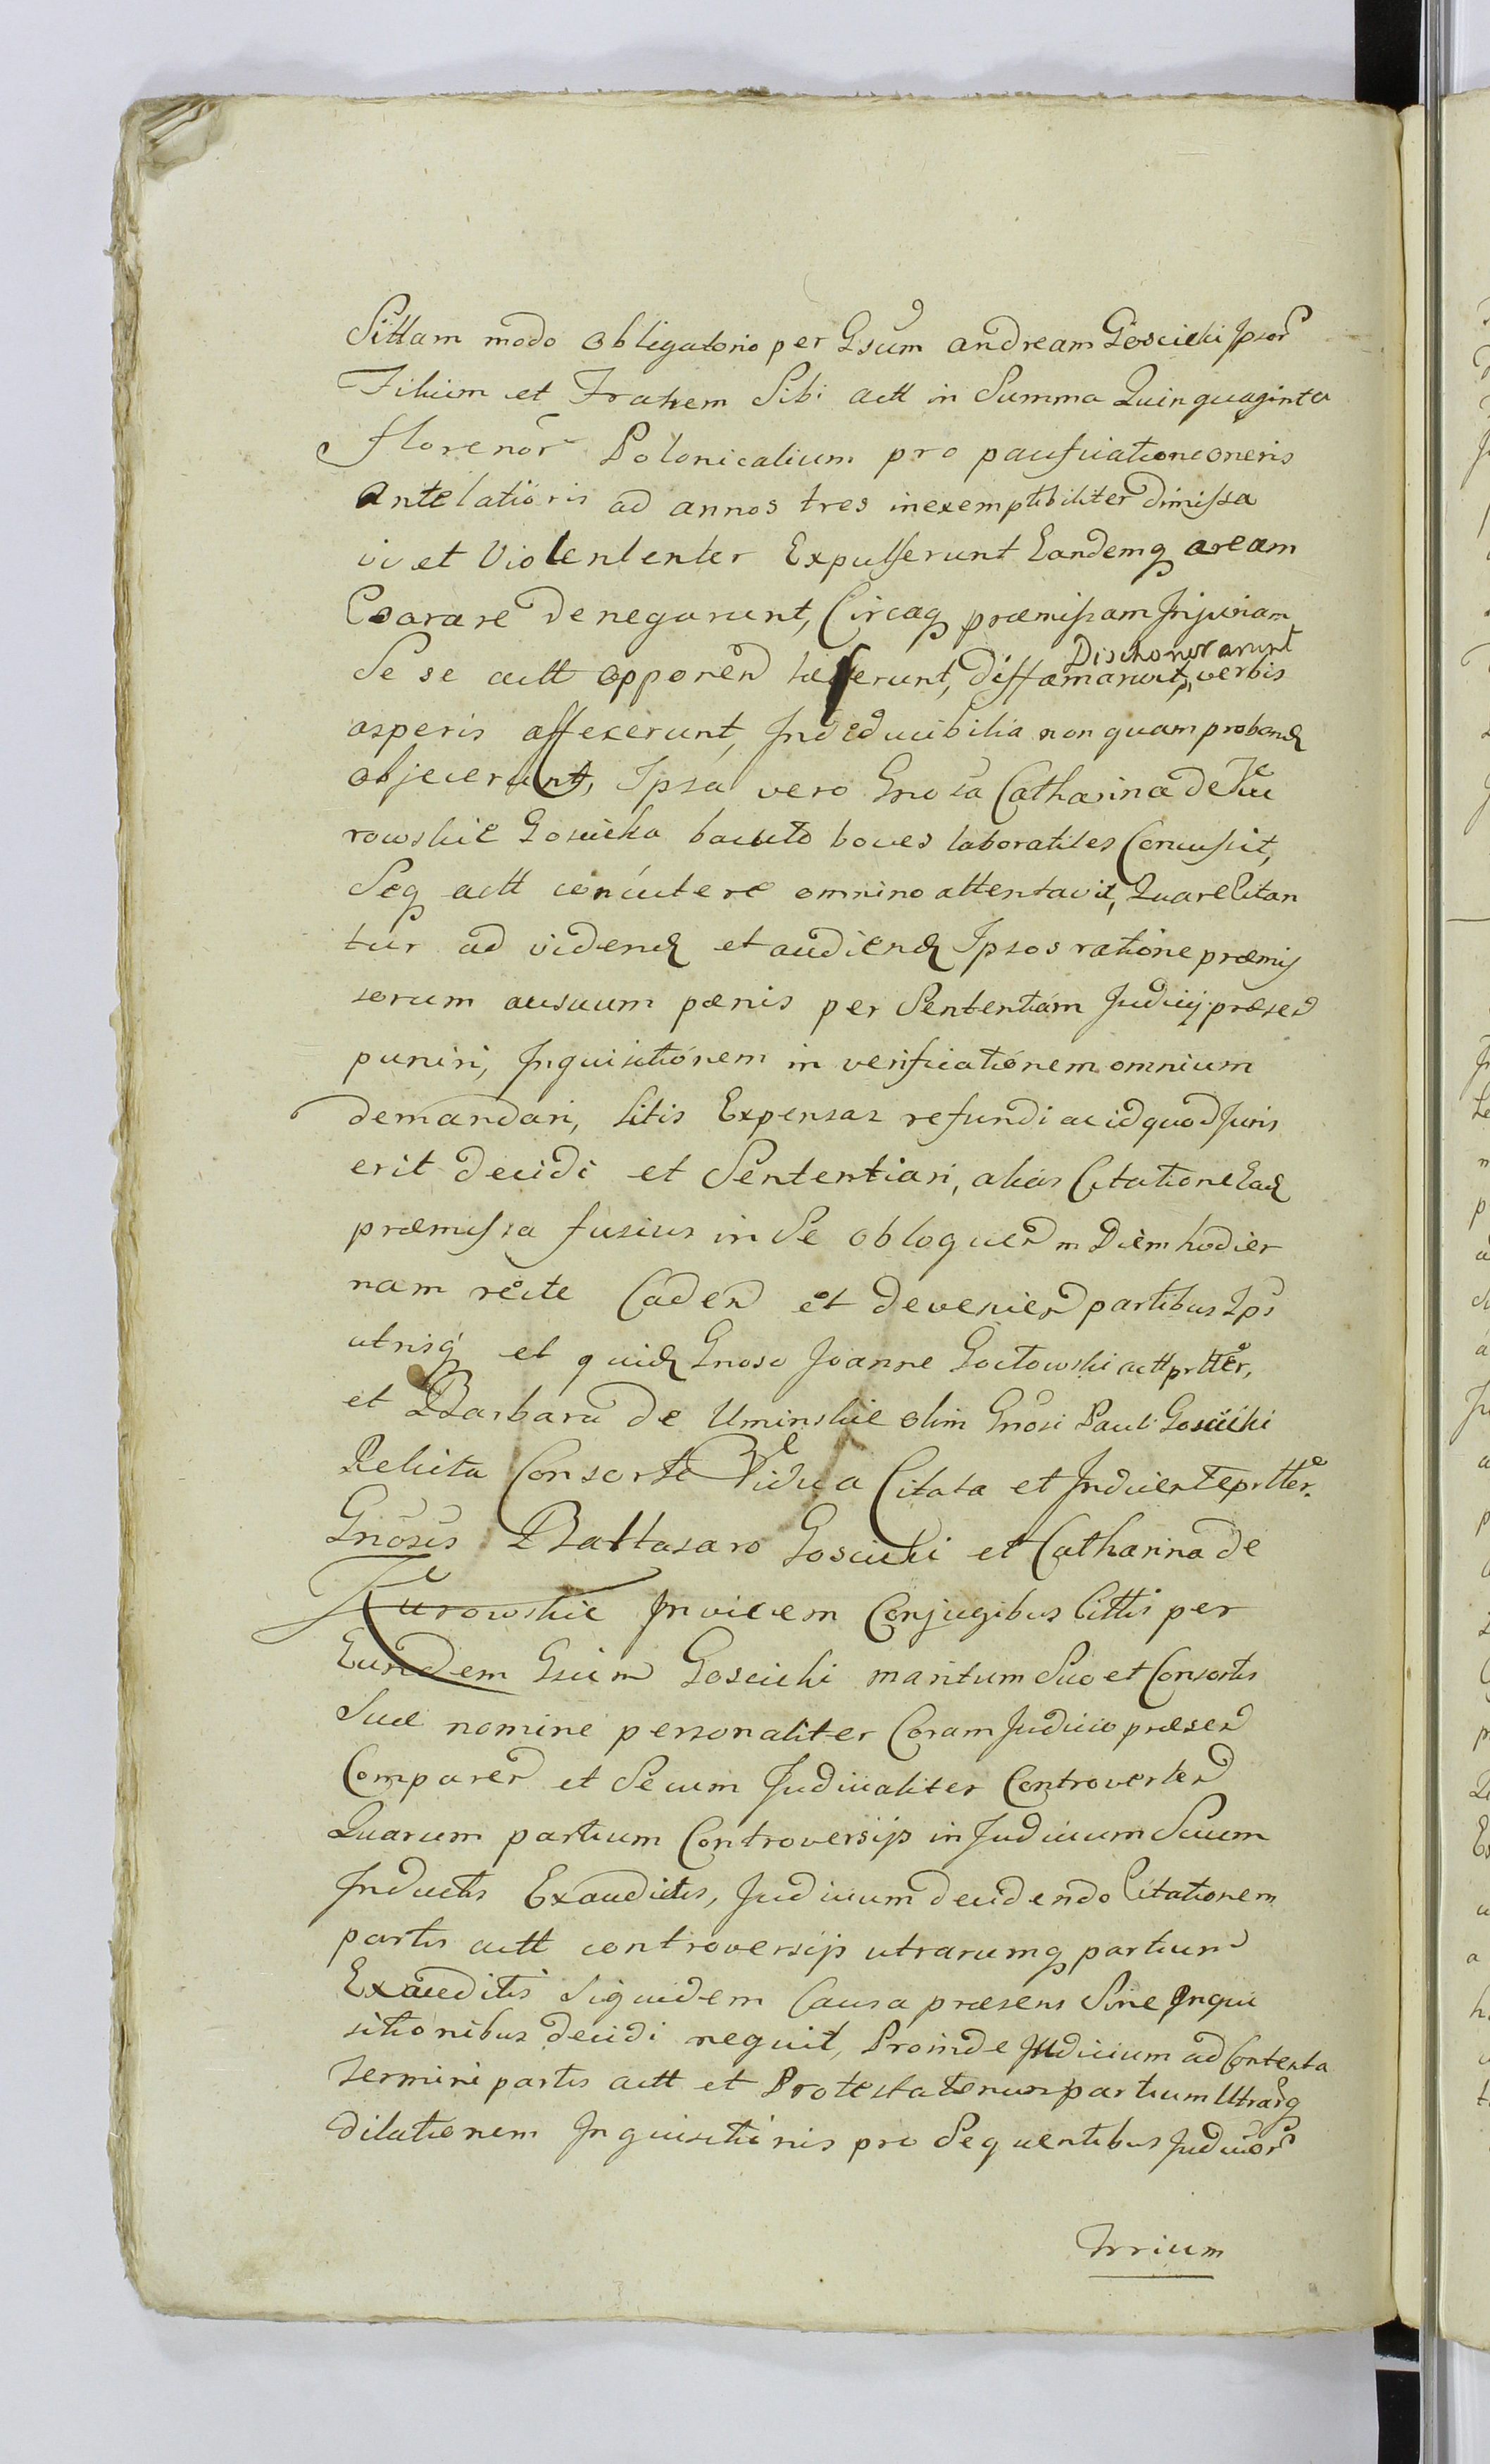 Sittam modo obligatorio per Gsum Andream Goscicki Ipsor
Filium et Fratrem Sibi actt in Summa Quinquaginta
florenor Polonicalium pro pacificatione oneris
Antelationis ad annos tres inexemptibiliter dimissa
vi et Violententer Expulserunt Eandemq aream
Exarare denegarunt, Circaq præmissam Injuriam
Se se actt opponen læserunt, diffamarunt, Dischonorarunt verbis
asperis affecerunt, Indeducibilia non quam proband
objecerunt, Ipsa vero Gnosa Catharina de Ku
rowskie Goscicka baculo boves laboratiles Concussit,
Seq actt concutere omnino attentavit, Quare Citan
tur ad vidend et audiend Ipsos ratione præmis
sorum ausuum pœnis per Sententiam Judicij præsen
puniri, Inquisitionem in verificationem omnium
demandari, litis Expensas refundi ac id quod Juris
erit decidi et Sententiari, alias Citatione Ead
præmissa fusius in Se obloquen in Diem hodier
nam recte Caden et devenien partibus Ips
utrisq et quid Gnoso Joanne Goctowski actt prtter,
et Barbara de Uminskie olim Gnosi Pauli Goscicki
Relicta Consorte Vidua Citata et Inducente prtter.
Gnosis Baltasaro Goscicki et Catharina de
Kurowskie Invicem Conjugibus Cittis per
Eundem Gsum Goscicki maritum Suo et Consortis
Suæ nomine personaliter Coram Judicio præsen
Comparen et Secum Judicialiter Controverten
Quarum partium Controversijs in Judicium Suum
Inductis Exauditis, Judicium decidendo Citationem
partis actt controversijs utrarumq partium
Exauditis Siquidem Causa præsens Sine Inqui
sitionibus decidi nequit, Proinde Judicium ad Contenta
Termini partis actt et Protestationum partium Utrarq
dilationem Inquisitionis pro Sequentibus Judicior
Trrium